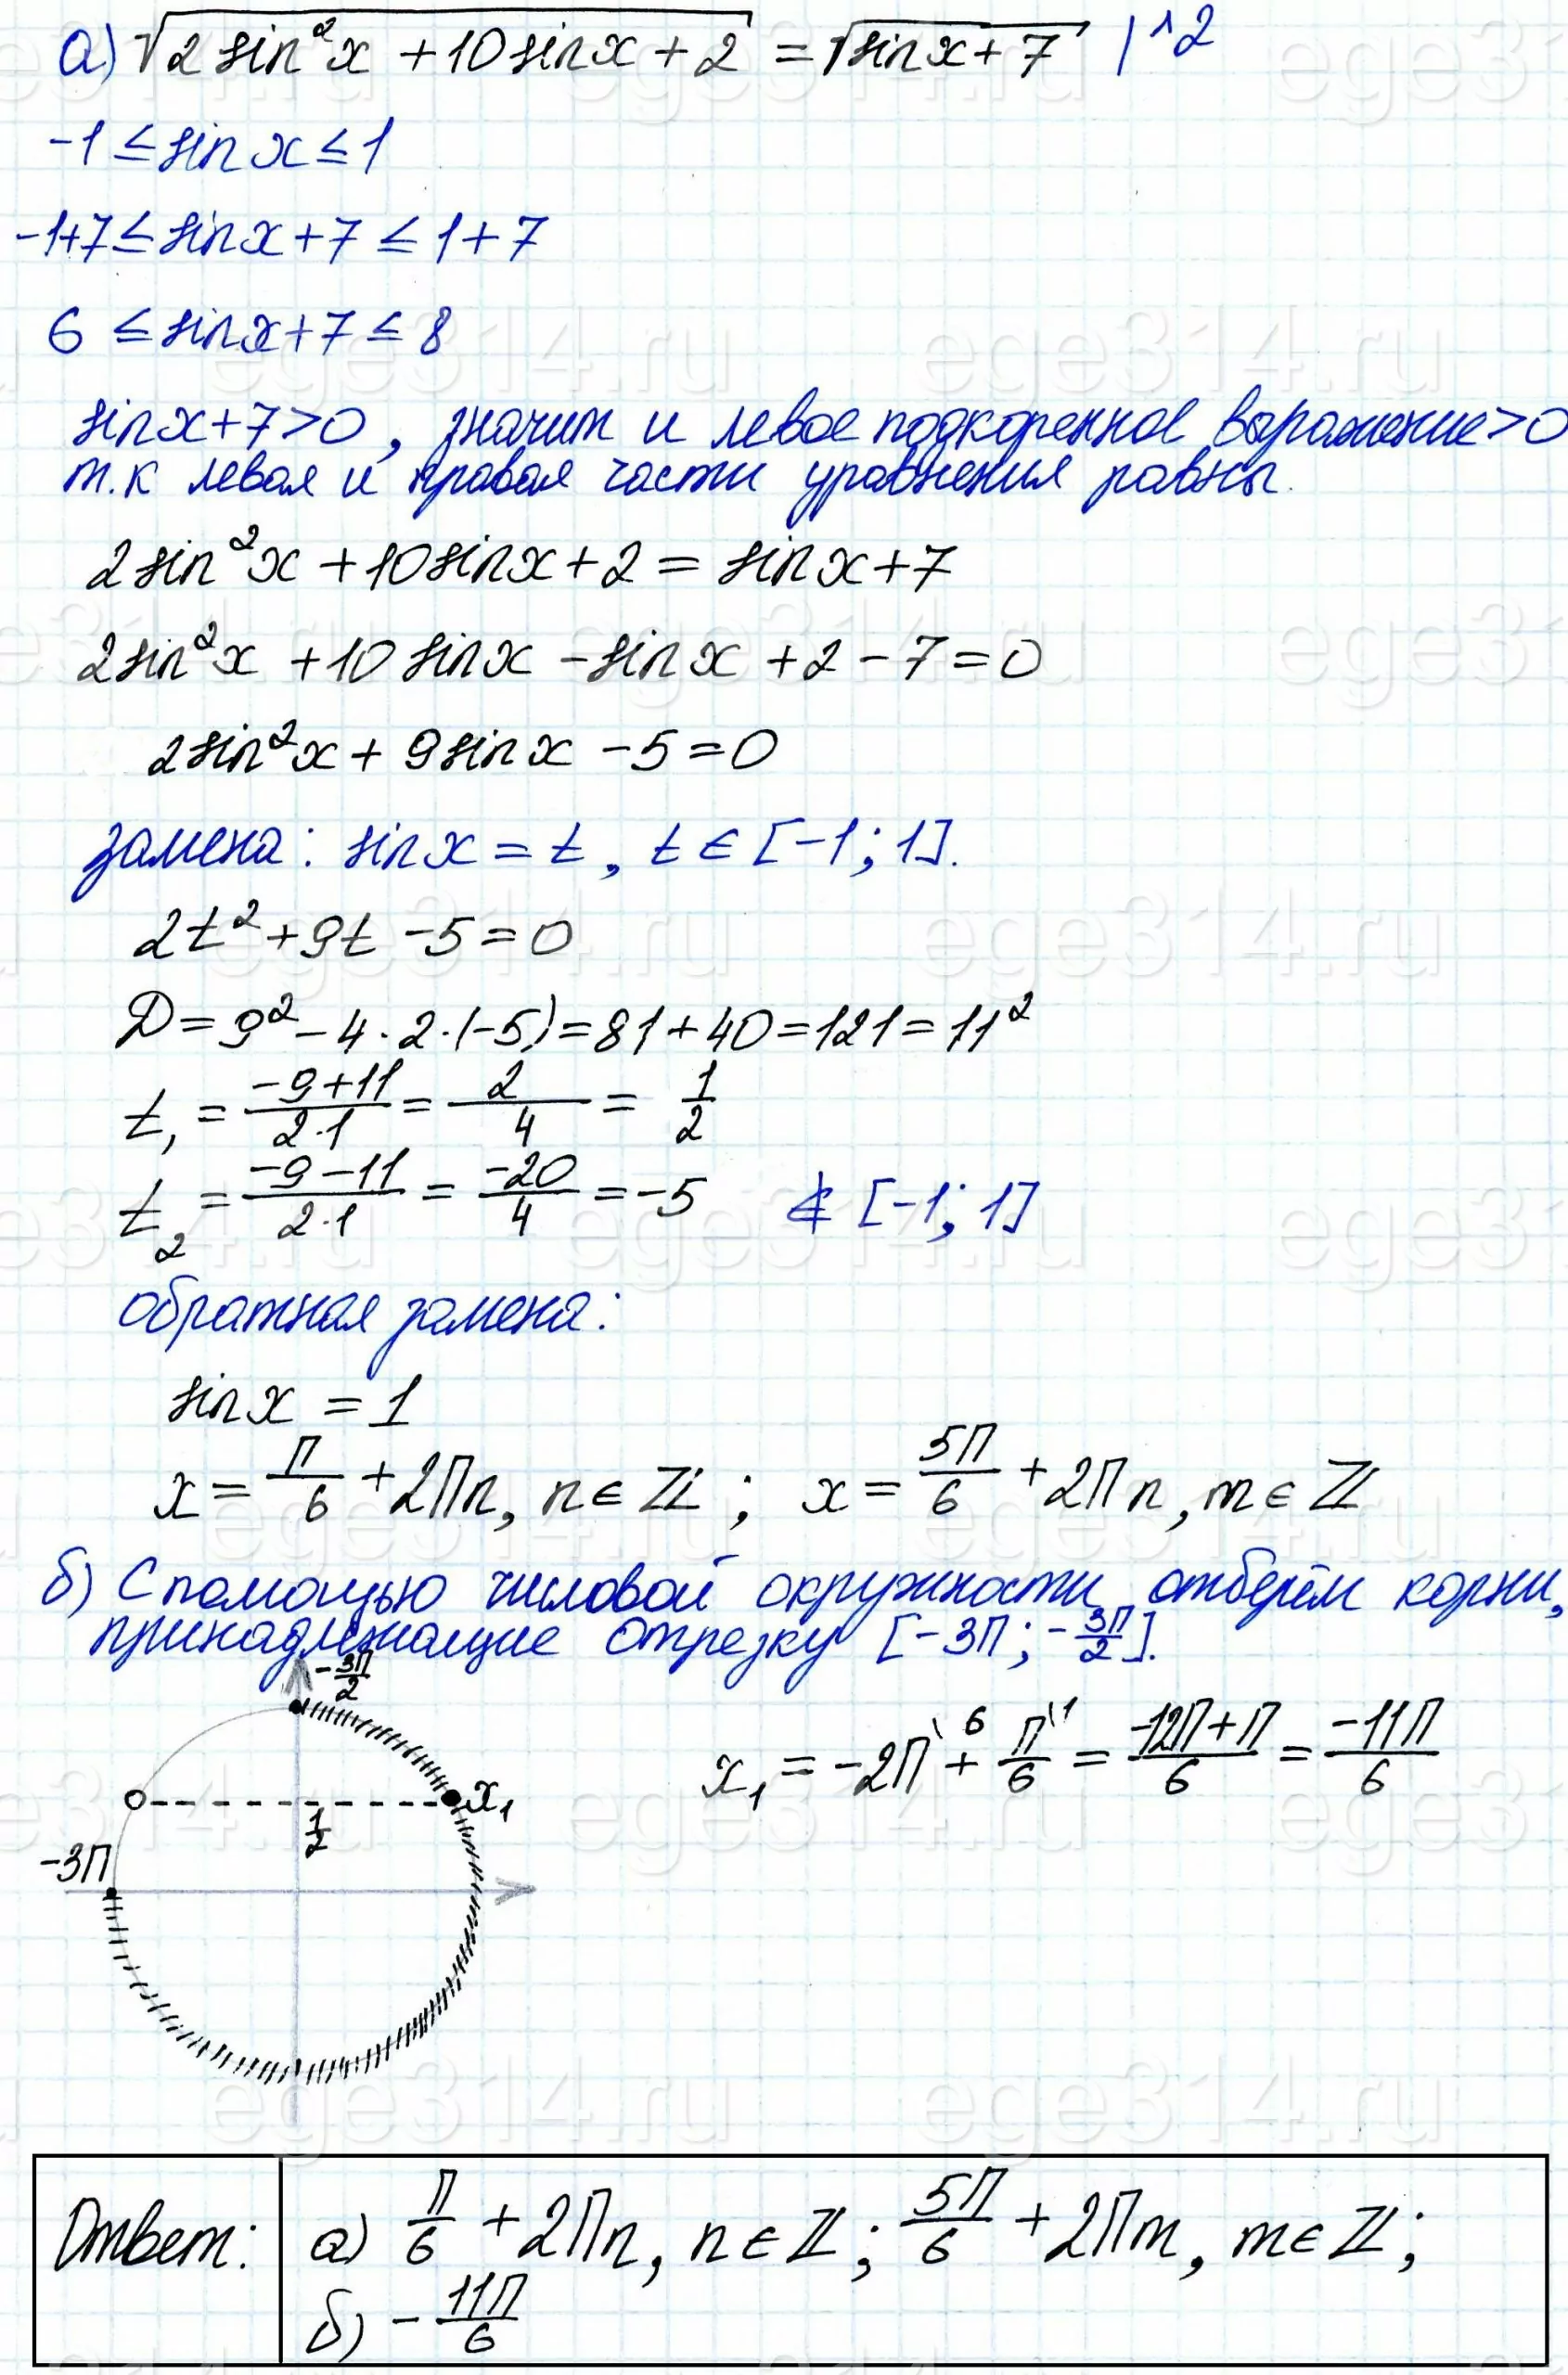 а) √(2sin²x + 10sinx + 2) = √(sinx + 7) |^2
-1 ≤ sin x ≤ 1
-1+7 ≤ sinx+7 ≤ 1+7
6 ≤ sinx+7 ≤ 8
sinx+7>0, значит и левое подкоренное выражение>0
т.к левая и правая части уравнения равны.
2sin²x + 10sinx + 2 = sinx + 7
2sin²x + 10sinx - sinx + 2 - 7 = 0
2sin²x + 9sinx - 5 = 0
замена: sinx = t, t ∈ [-1; 1].
2t² + 9t - 5 = 0
D = 9² - 4·2·(-5) = 81 + 40 = 121 = 11²
t₁ = (-9+11)/(2·1) = 2/4 = 1/2
t₂ = (-9-11)/(2·1) = -20/4 = -5 ∉ [-1; 1]
обратная замена:
sinx = 1
x = П/6 + 2Пn, n∈Z; x = 5П/6 + 2Пn, m∈Z
б) С помощью числовой окружности отберём корни,
принадлежащие отрезку [-3П; -3П/2].
-3П/2
x₁ = -2П\6 + П/6\1 = (-12П+П)/6 = -11П/6
x₁
1/2
-3П
Ответ: а) П/6 + 2Пn, n∈Z; 5П/6 + 2Пm, m∈Z;
б) -11П/6
ege314.ru